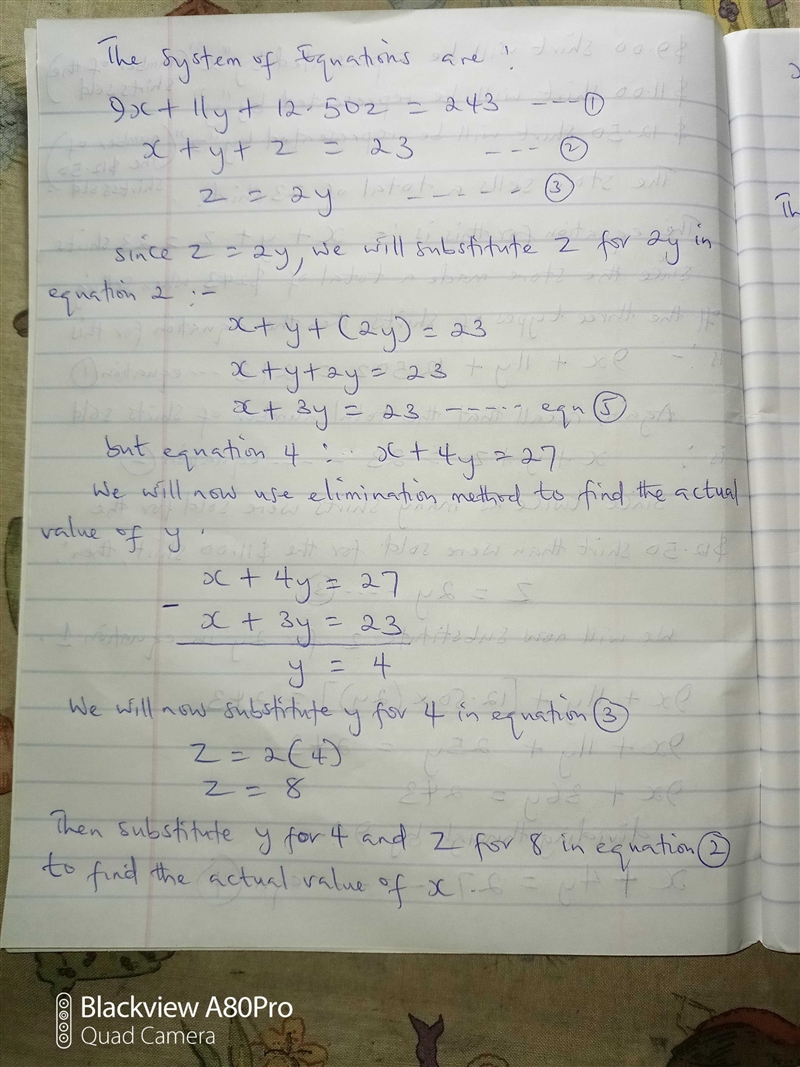 The System of Equations are :
9x + 11y + 12.50z = 243 ---- ①
x + y + z = 23 --- ②
z = 2y ------- ③
since z = 2y, we will substitute z for 2y in
equation 2 :-
x + y + (2y) = 23
x + y + 2y = 23
x + 3y = 23 ------ eqn ⑤
but equation 4 : x + 4y = 27
We will now use elimination method to find the actual
value of y.
x + 4y = 27
- x + 3y = 23
y = 4
We will now substitute y for 4 in equation ③
z = 2(4)
z = 8
Then substitute y for 4 and z for 8 in equation ②
to find the actual value of x.
Th
Blackview A80Pro
Quad Camera